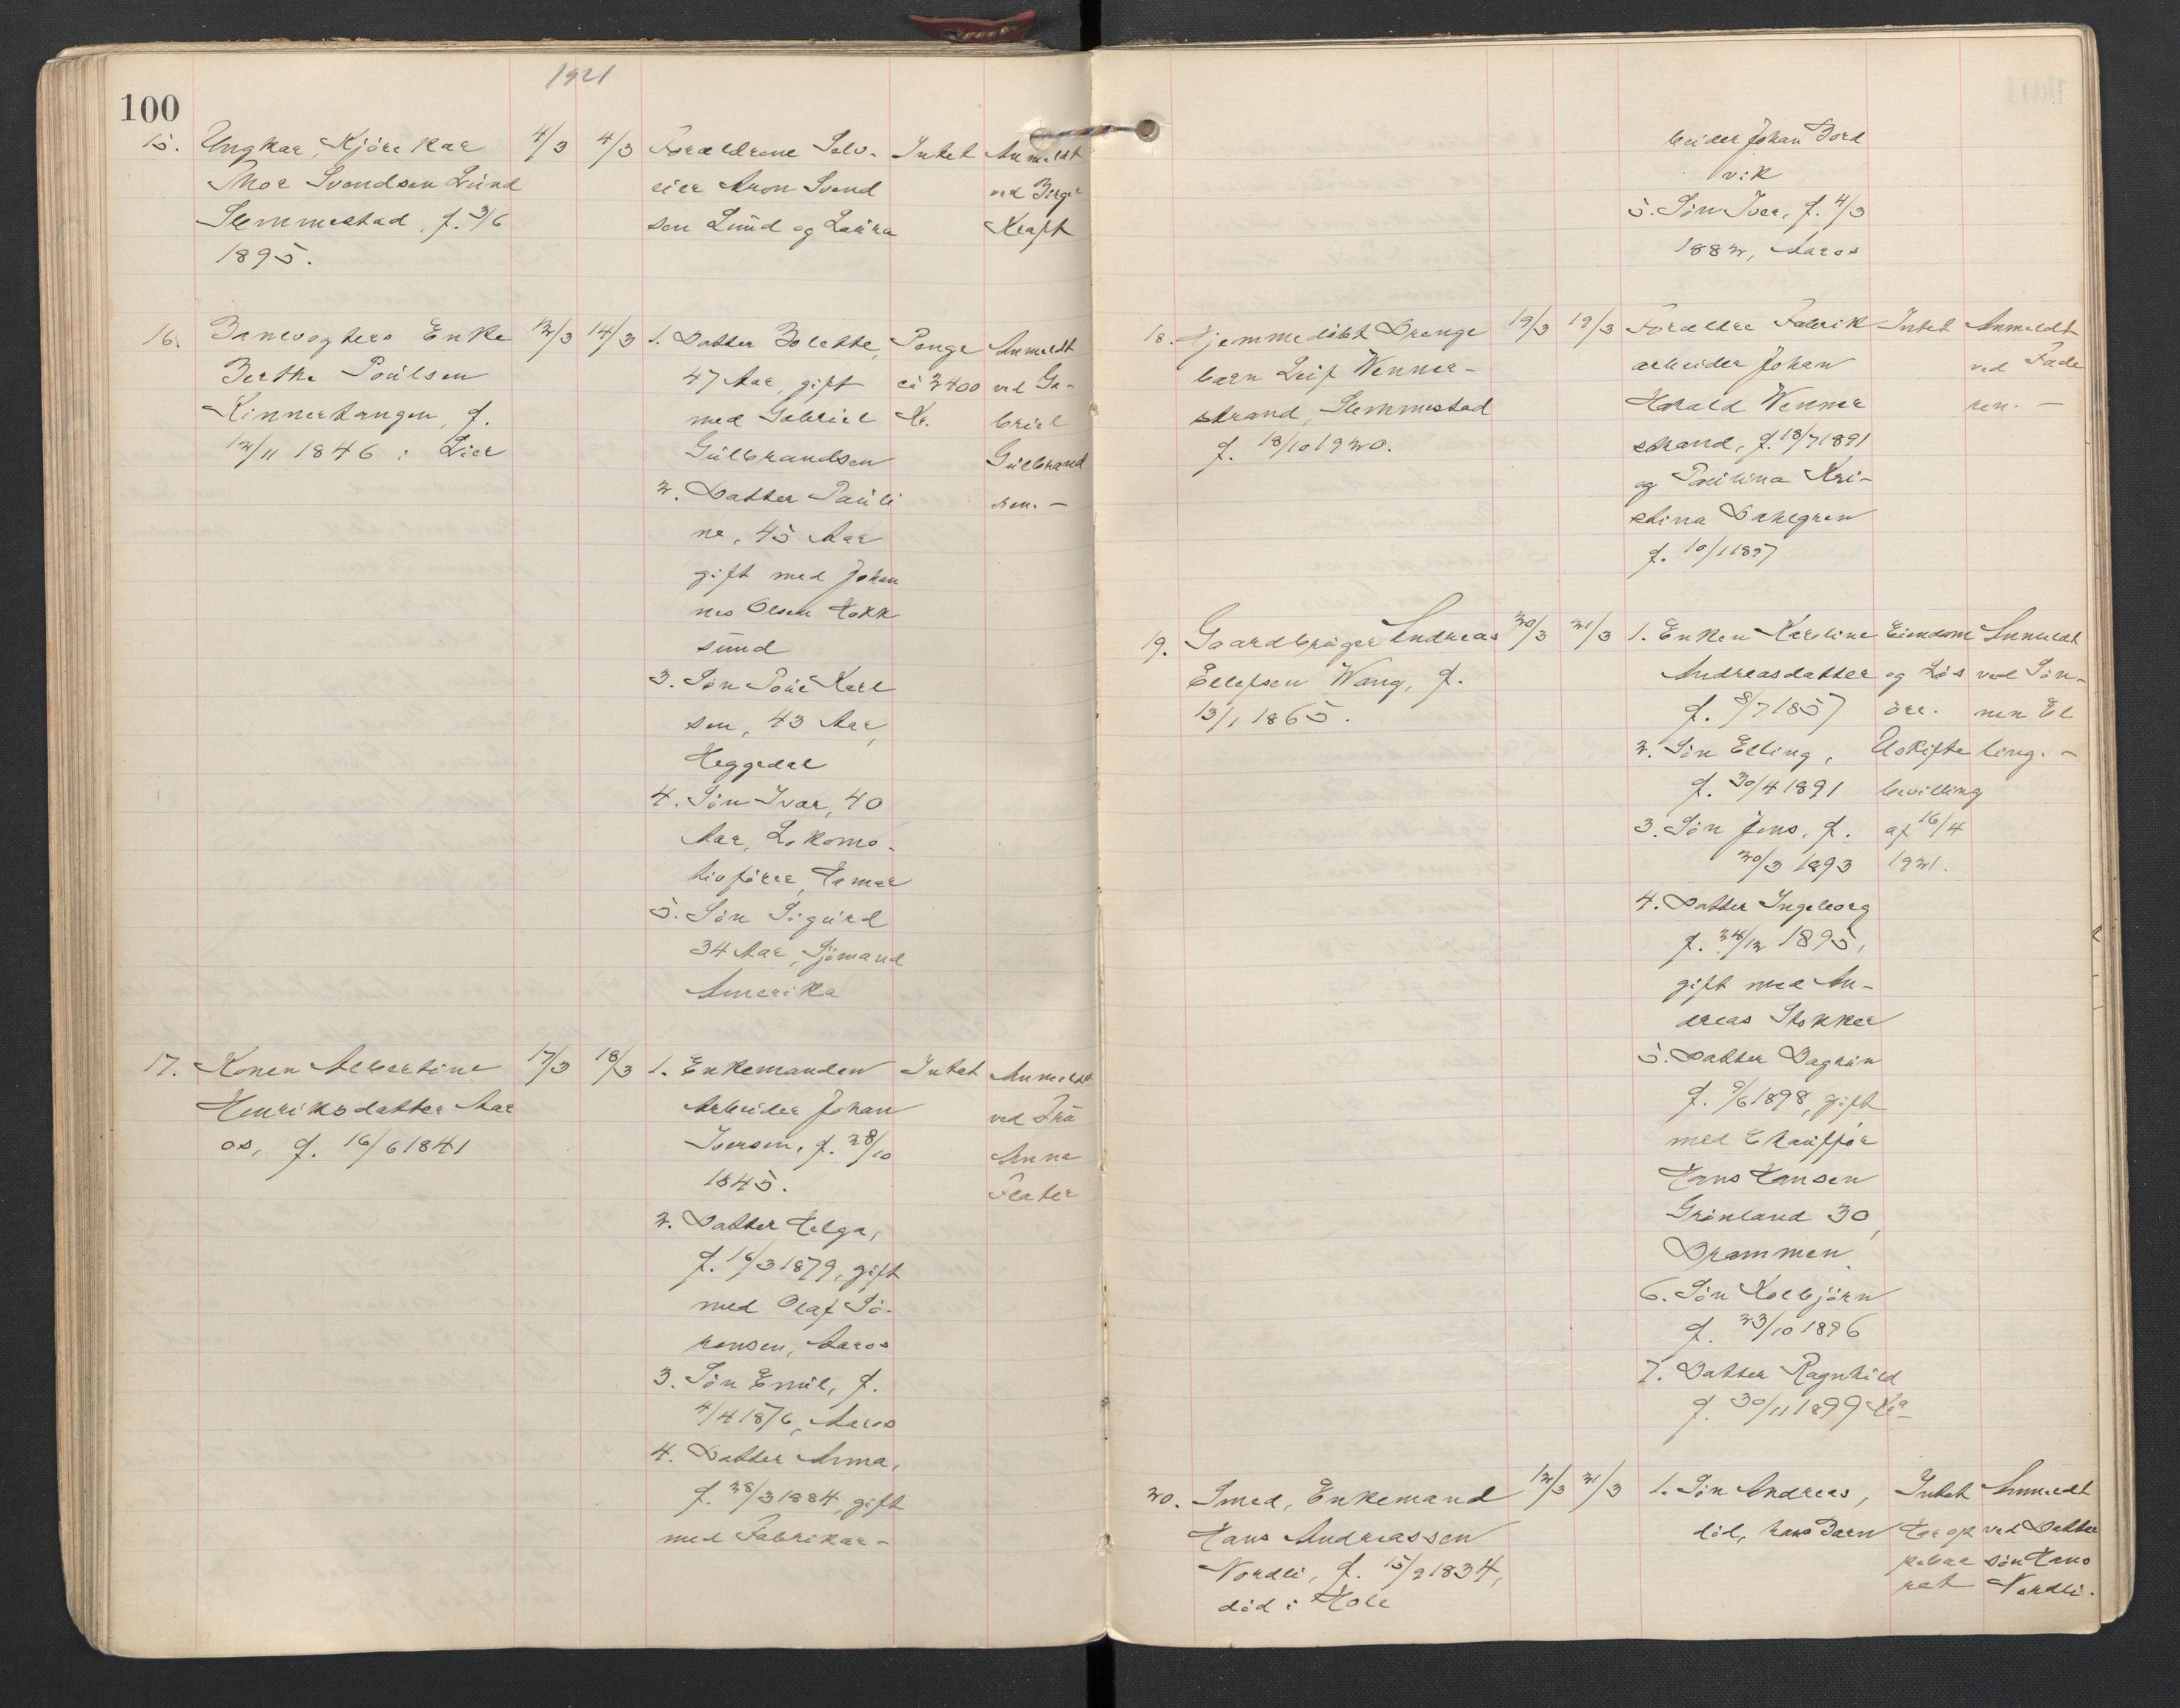 100
1921
15. Ungkar, Kjørekar 4/3 4/3 Forældrene Selv- Intet Anmeldt
Thor Svendsen Lund eier Aron Svend ved Birger
Slemmestad, f. 3/6 sen Lund og Laura Kraft
1895.
16. Banevogters Enke 12/3 14/3 1. Datter Bolette, Penge Anmeldt
Berthe Poulsen 47 Aar, gift ca 2400 ved Ga-
Kinnertangen, f. med Gabriel Kr. briel
12/11 1846 i Lier Gulbrandsen Gulbrand
2. Datter Pauli sen. -
ne, 45 Aar
gift med Johan
nes Olsen Hokk
sund
3. Søn Poul Karl
sen, 43 Aar,
Heggedal
4. Søn Ivar, 40
Aar, Lokomo-
tivfører, Hamar
5. Søn Sigurd
34 Aar, Sjømand
Amerika
17. Konen Albertine 17/3 18/3 1. Enkemanden Intet Anmeldt
Henriksdatter Aar Arbeider Johan ved Fru
os, f. 16/6 1841 Iversen, f. 28/10 Anna
1845.
2. Datter Helga,
f. 16/3 1879, gift
med Olaf Sø-
rensen, Aaros
3. Søn Emil, f.
4/4 1876, Aaros
4. Datter Anna,
f. 28/3 1884, gift
med Fabrikar-
beider Johan Bord
vik
5. Søn Iver, f. 4/3
1882, Aaros
18. Hjemmedøbt Drenge 19/3 19/3 Forældre Fabrik Intet Anmeldt
barn Leif Wenner- arbeider Johan ved Fade
strand, Slemmestad Harald Wenner ren. -
f. 18/10 1920. strand, f. 18/7 1891
og Paulina Kri-
stina Dahlgren
f. 10/1 1897
19. Gaardbruger Andreas 20/3 21/3 1. Enken Karoline Eiendom Anmeldt
Ellefsen Wang, f. Andreasdatter og Løs ved Søn-
13/1 1865. f. 8/7 1857 øre. nen El
2. Søn Elling, Uskifte ling. -
f. 30/4 1891 bevilling
3. Søn Jens, f. af 16/4
20/3 1893 1921.
4. Datter Ingeborg
f. 24/12 1895,
gift med An-
dreas Stokker
5. Datter Dagrun
f. 9/6 1898, gift
med Chauffør
Hans Hansen
Grønland 30,
Drammen.
6. Søn Kolbjørn
f. 23/10 1896
7. Datter Ragnhild
f. 30/11 1899
20. Smed, Enkemand 12/3 21/3 1. Søn Andreas, Intet Anmeldt
Hans Andreassen død, hans Barn Har op ved Datter
Nordli, f. 15/2 1834, søn Hans
død i Hole Nordli.